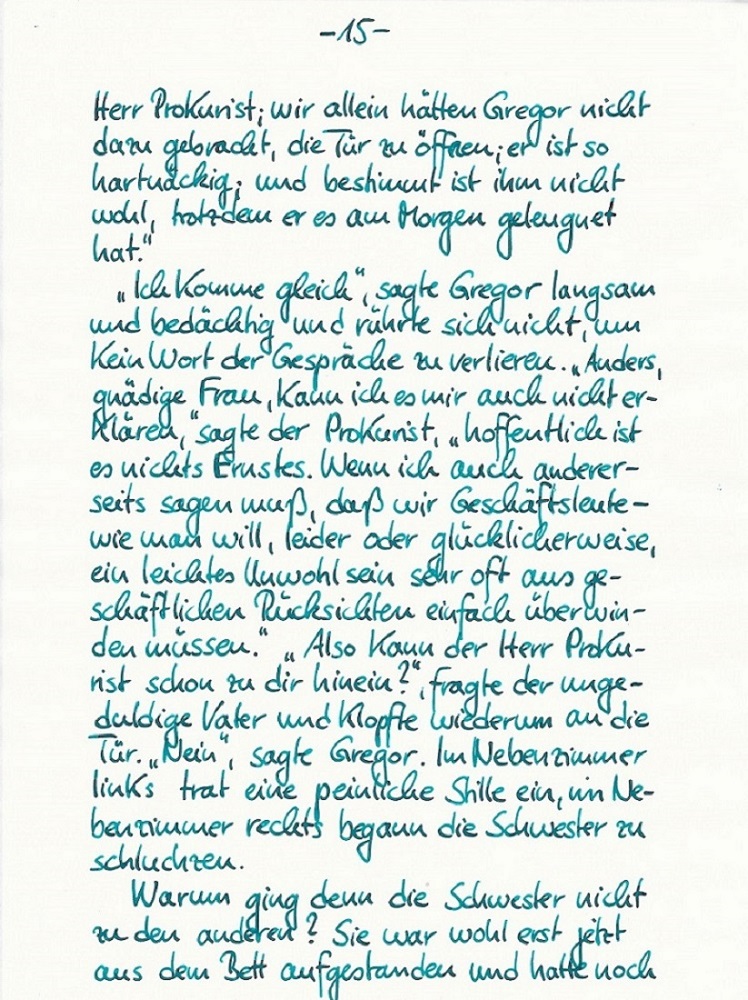 -15-
Herr Prokurist; wir allein hätten Gregor nicht
dazu gebracht, die Tür zu öffnen; er ist so
hartnäckig; und bestimmt ist ihm nicht
wohl, trotzdem er es am Morgen geleugnet
hat."
„Ich komme gleich", sagte Gregor langsam
und bedächtig und rührte sich nicht, um
kein Wort der Gespräche zu verlieren. „Anders,
gnädige Frau, kann ich es mir auch nicht er-
klären," sagte der Prokurist, „hoffentlich ist
es nichts Ernstes. Wenn ich auch anderer-
seits sagen muß, daß wir Geschäftsleute -
wie man will, leider oder glücklicherweise,
ein leichtes Unwohlsein sehr oft aus ge-
schäftlichen Rücksichten einfach überwin-
den müssen." „Also kann der Herr Proku-
rist schon zu dir hinein?", fragte der unge-
duldige Vater und klopfte wiederum an die
Tür. „Nein", sagte Gregor. Im Nebenzimmer
links trat eine peinliche Stille ein, im Ne-
benzimmer rechts begann die Schwester zu
schluchzen.
Warum ging denn die Schwester nicht
zu den anderen? Sie war wohl erst jetzt
aus dem Bett aufgestanden und hatte noch